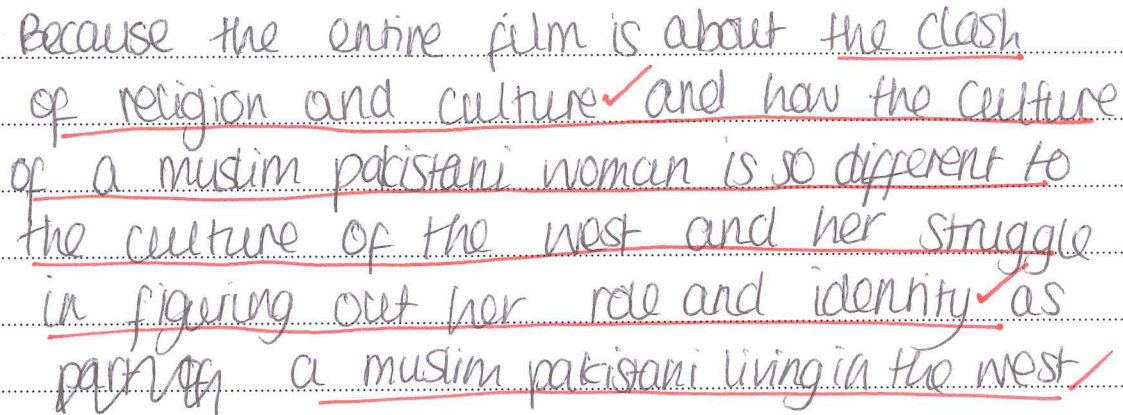 Because the entire film is about the clash
of religion and culture and how the culture
of a muslim pakistani woman is so different to
the culture of the west and her struggle
in figuring out her role and identity as
a muslim pakistani living in the west